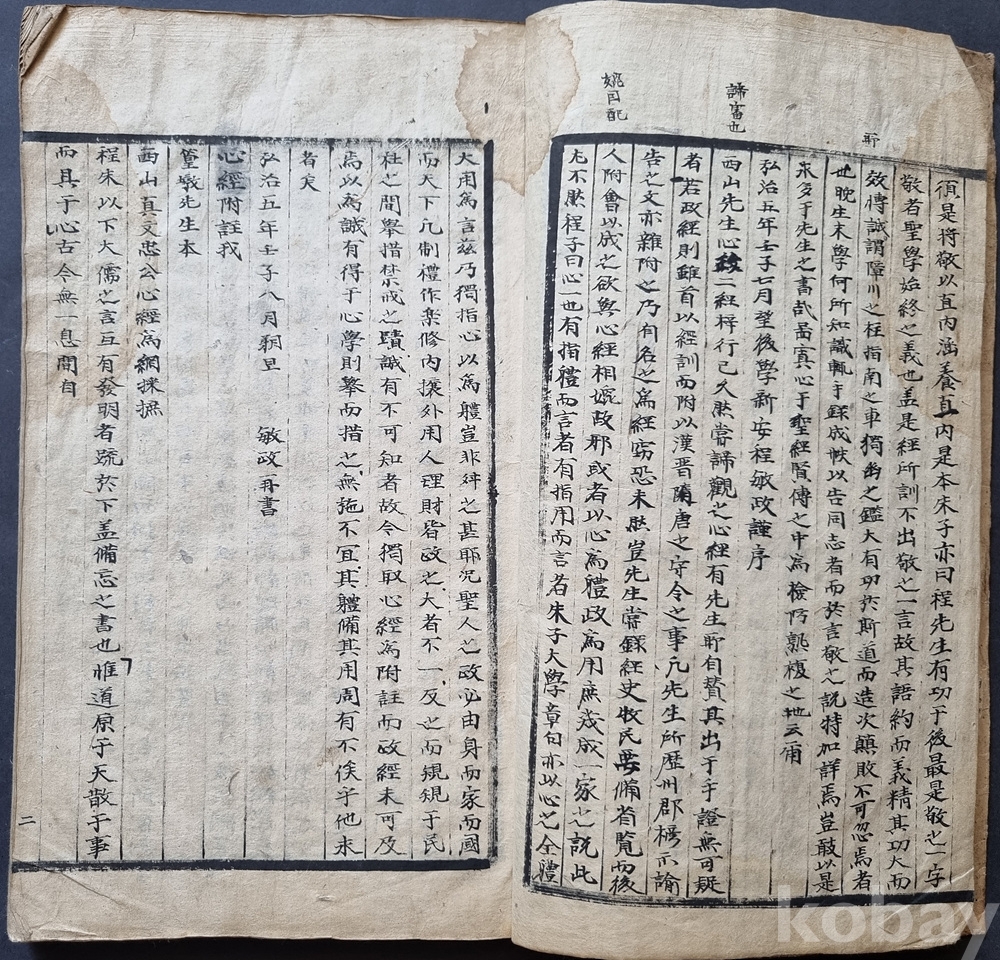 所
諦審也
婗同配
須是將敬以直內涵養直內是本朱子亦曰程先生有功于後最是敬之一字
敬者聖學始終之義也盖是經所訓不出敬之一言故其語約而義精其功大而
效博誠謂障川之柱指南之車獨幽之鑑大有功於斯道而造次顚敗不可忽焉者
也晩生末學何所知識輒手錄成帙以告同志者而於言敬之說特加詳焉豈敢以是
求多于先生之書哉啚寘心于聖經賢傳之中爲檢防熟複之地云甭
弘治五年壬子七月望後學新安程敏政謹序
西山先生心政二經梓行已久然嘗諦觀之心經有先生所自賛其出于手證無可疑
者若政經則雖首以經訓而附以漢晋隋唐之守令之事凡先生所歷州郡榜示諭
告之文亦雜附之乃有名之爲經窃恐未然豈先生嘗錄經史牧民要備省覽而後
人附會以成之欲與心經相婗政邪或者以心爲禮政爲用庶幾成一家之說此
尤不然程子曰心一也有指禮而言者有指用而言者朱子大學章句亦以心之全禮
大用爲言玆乃獨指心以爲軆豈非舛之甚耶况聖人之政必由身而家而國
而天下凡制禮作樂修內攘外用人理財皆政之大者不一反之而規規于民
社之間擧措禁戒之蹟誠有不可知者故今獨取心經爲附註而政經未可及
焉以爲誠有得于心學則擧而措之無施不宜其軆備其用周有不俟乎他求
者矣
弘治五年壬子八月朔旦 敏政再書
心經附註我
篁墩先生本
西山眞文忠公心經爲網採摭
程朱以下大儒之言互有發明者疏於下盖備忘之書也惟道原于天散于事
而具于心古今無一息間自
二
kobay